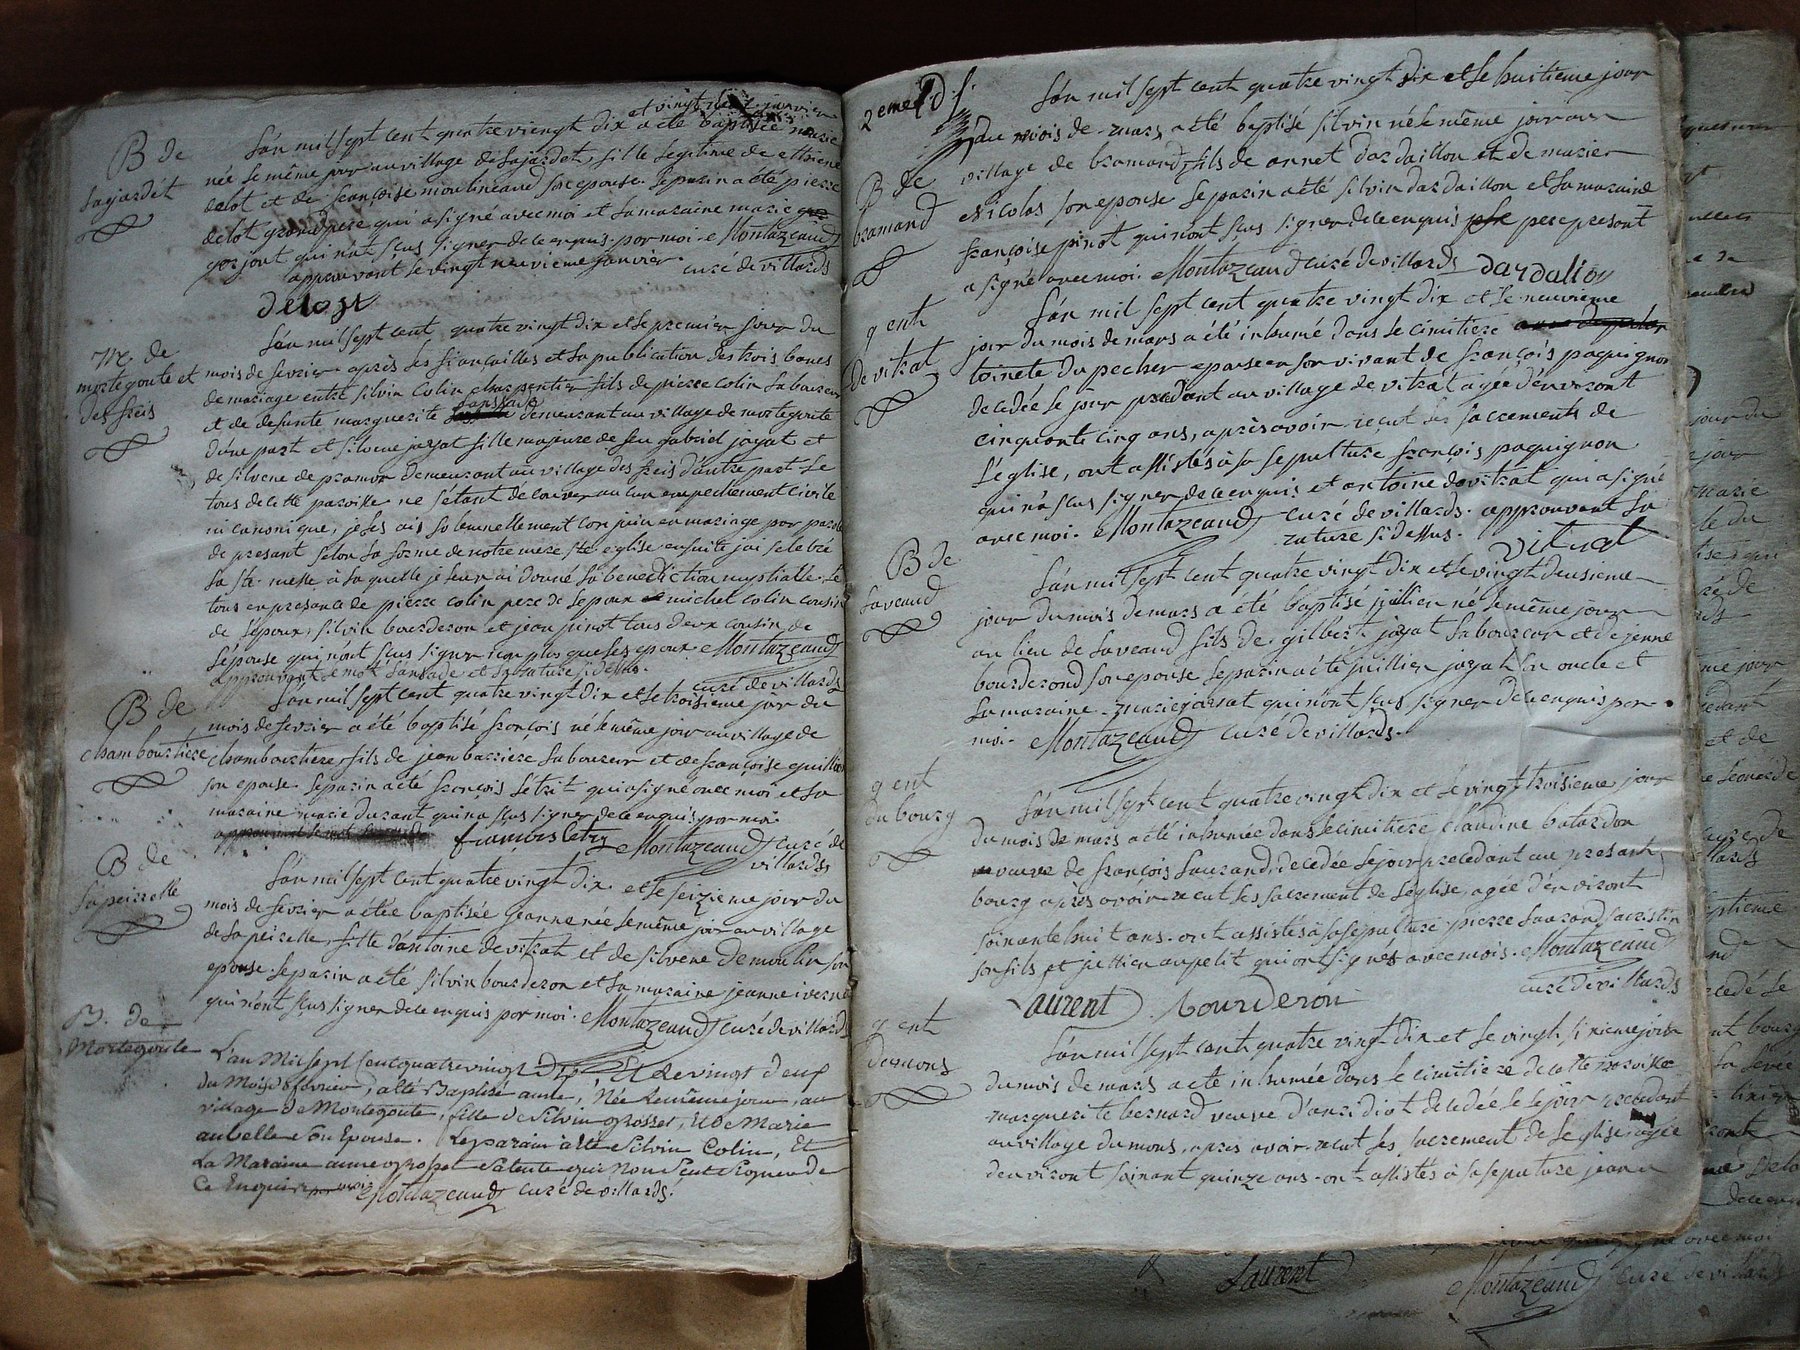 et vingt neuf janvier
B de
lajardet
L'an mil sept cent quatre viengt dix a été baptisée marie
née le même jour au village de lajardet, fille legitime de ettiene
delot et de françoise moulineaud son epouse. le parin a été pierre
delot grand pere qui a signé avec moi et la maraine marie
gorjont qui n'at scus signer de ce enquis. por moi. Montazeaud
approuvant le vingt neuvieme janvier. curé de villards
delost
M. de
mortegoute et
des freis
L'an mil sept cent quatre vingt dix et le premier jour du
mois de fevrier après les fiançailles et la publication des trois bancs
de mariage entre silvin Colin charpentier fils de pierre colin laboureur
et de defunte marguerite sansade demeurant au village de mortegoute
d'une part et silvene jayat fille majeure de feu gabriel jayat et
de silvene de pramor demeurant au village des freis d'autre part le
tous de cette paroisse ne s'étant découver aucun empechement civile
ni canonique, je les ais solennellement conjuin en mariage por parole
de presant selon la forme de notre mere ste eglise ensuite jai selebré
la ste. messe à laquelle je leur ai donné la benediction nuptialle. le
tous en presance de pierre colin pere de lepoux et michel colin cousin
de l'epoux, silvin bourderon et jean pinot tous deux cousin de
l'épouse qui n'ont scus signer non plus que les epoux Montazeaud
approuvant le mot sansade et la rature si dessus. curé de villards
B de
chamboursliere
L'an mil sept cent quatre vingt dix et le troisieme jour du
mois de fevrier a été baptisé françois né le même jour au village de
chambourtiere, fils de jean barriere laboureur et de françoise
son epouse. le parin a été françois letrit qui a signé avec moi et la
maraine marie durant qui na scus signer de ce enquis por moi.
françois letry Montazeaud curé de
villards
B de
la peirelle
L'an mil sept cent quatre vingt dix et le seizieme jour du
mois de fevrier a étée baptisée jeanne née le même jour au village
de la peirelle, fille d'antoine devitrat et de silvene demoulin son
epouse. le parin a été silvin bourderon et la maraine jeanne
qui n'ont scus signer de ce enquis por moi. Montazeaud curé de villards
B. de
Mortegoute
L'an Mil sept Cent quatre vingt Dix Et Le vingt deux
du Mois de fevrier, a été Baptisé anne, Née Le même jour, au
village de Mortegoute, fille de Silvin grosset, et De Marie
aubelle Son Epouse. Le parain a été Silvin Colin, Et
La Maraine anne grosset Sa tente qui Nont Seut Signer de
Ce Enquis por moi Montazeaud curé de villards.
2eme
B de
bramand
L'an mil sept cent quatre vingt dix et le huitieme jour
du mois de mars a été baptisé silvin né le même jour au
village de bramand, fils de annet dardaillon et de marie
Nicolas son epouse le parin a été silvin dardaillon et la maraine
françoise pinot qui n'ont scus signer de ce enquis pere presant
a signé avec moi. Montazeaud curé de villards dardalion
g ent
de vitrat
L'an mil sept cent quatre vingt dix et le neuvieme
jour du mois de mars a été inhumé dans le cimitiere
toinete du pecher epouse en son vivant de françois paquignon
decedée le jour predant au village de vitrat agée d'environt
cinquante cinq ans, après avoir recut les sacrements de
l'église, ont assistés à sa sepulture françois paquignon
qui n'a scus signer de ce enquis et antoine de vitrat qui a signé
avec moi. Montazeaud curé de villards. approuvant la
rature si dessus. vitrat
B de
laveaud
L'an mil sept cent quatre vingt dix et le vingt deusieme
jour du mois de mars a été baptisé jullien né le même jour
au lieu de laveaud fils de gilbert jayat laboureur et de jenne
bourderond son epouse le parin a été jullien jayat son oncle et
la maraine marie jarsat qui n'ont scus signer de ce enquis por
moi. Montazeaud curé de villards.
g ent
du bourg
L'an mil sept cent quatre vingt dix et le vingt troisieme jour
du mois de mars a été inhumée dans le cimitiere claudine batardon
veuve de françois Laurand, decedée le jour precedant au presant
bourg après avoir recut les sacrement de l'église, agée d'environt
soixante huit ans. ont assistés à sa sepulture pierre Laurand sacristin
son fils et jullien aupetit qui ont signés avec mois. Montazeaud
curé de villards
Laurent Bourderon
g ent
du mons
L'an mil sept cent quatre vingt dix et le vingt sixieme jour
du mois de mars a été inhumée dans le cimitiere de cette paroisse
marguerite bernard veuve d'anri diot decedée le jour precedant
au village du mons, apres avoir recut les sacrement de l'église agée
d'environt soixant quinze ans. ont assistés à sa sepulture jean
Laurent Montazeaud curé de villards